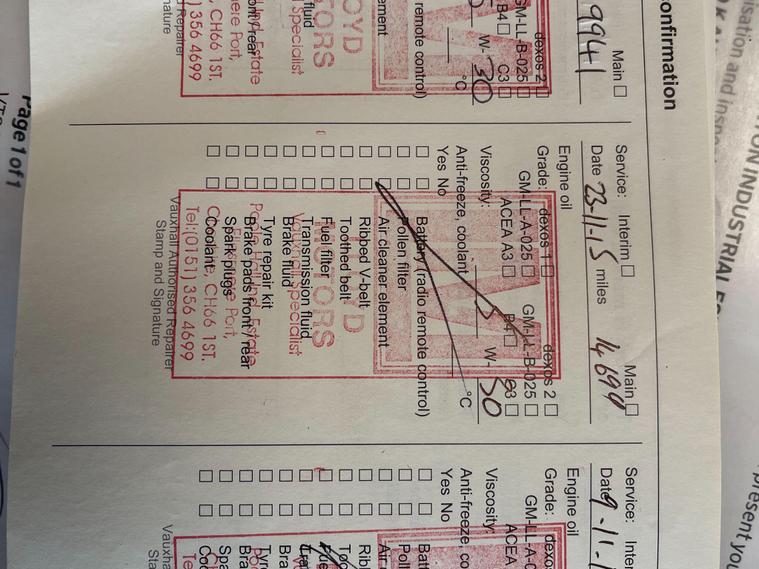 onfirmation
Main
9941
dexos 2
GM-LL-B-025
B4 C3
W-30
°C
remote control)
ement
fluid
ont/rear
Tel:(0151) 356 4699
Service: Interim Main
Date 23-11-15 miles 14699
Engine oil
Grade: dexos 1 dexos 2
GM-LL-A-025 GM-LL-B-025
ACEA A3 B4 C3
Viscosity: 5 W-30
Anti-freeze, coolant °C
Yes No
Battery (radio remote control)
Pollen filter
Air cleaner element
Ribbed V-belt
Toothed belt
Fuel filter
Transmission fluid
Brake fluid
Tyre repair kit
Brake pads front/rear
Spark plugs
Coolant
MOTORS
Vauxhall Specialist
Estate
Port,
CH66 1ST.
Tel:(0151) 356 4699
Vauxhall Authorised Repairer
Stamp and Signature
Service: Inter
Date 9-11-1
Engine oil
Grade: dexo
GM-LL-A-0
ACEA
Viscosity:
Anti-freeze, co
Yes No
Batt
Poll
Air
Ribl
Too
Fue
Bra
Tyr
Bra
Spa
Coo
Vauxha
Sta
Page 1 of 1